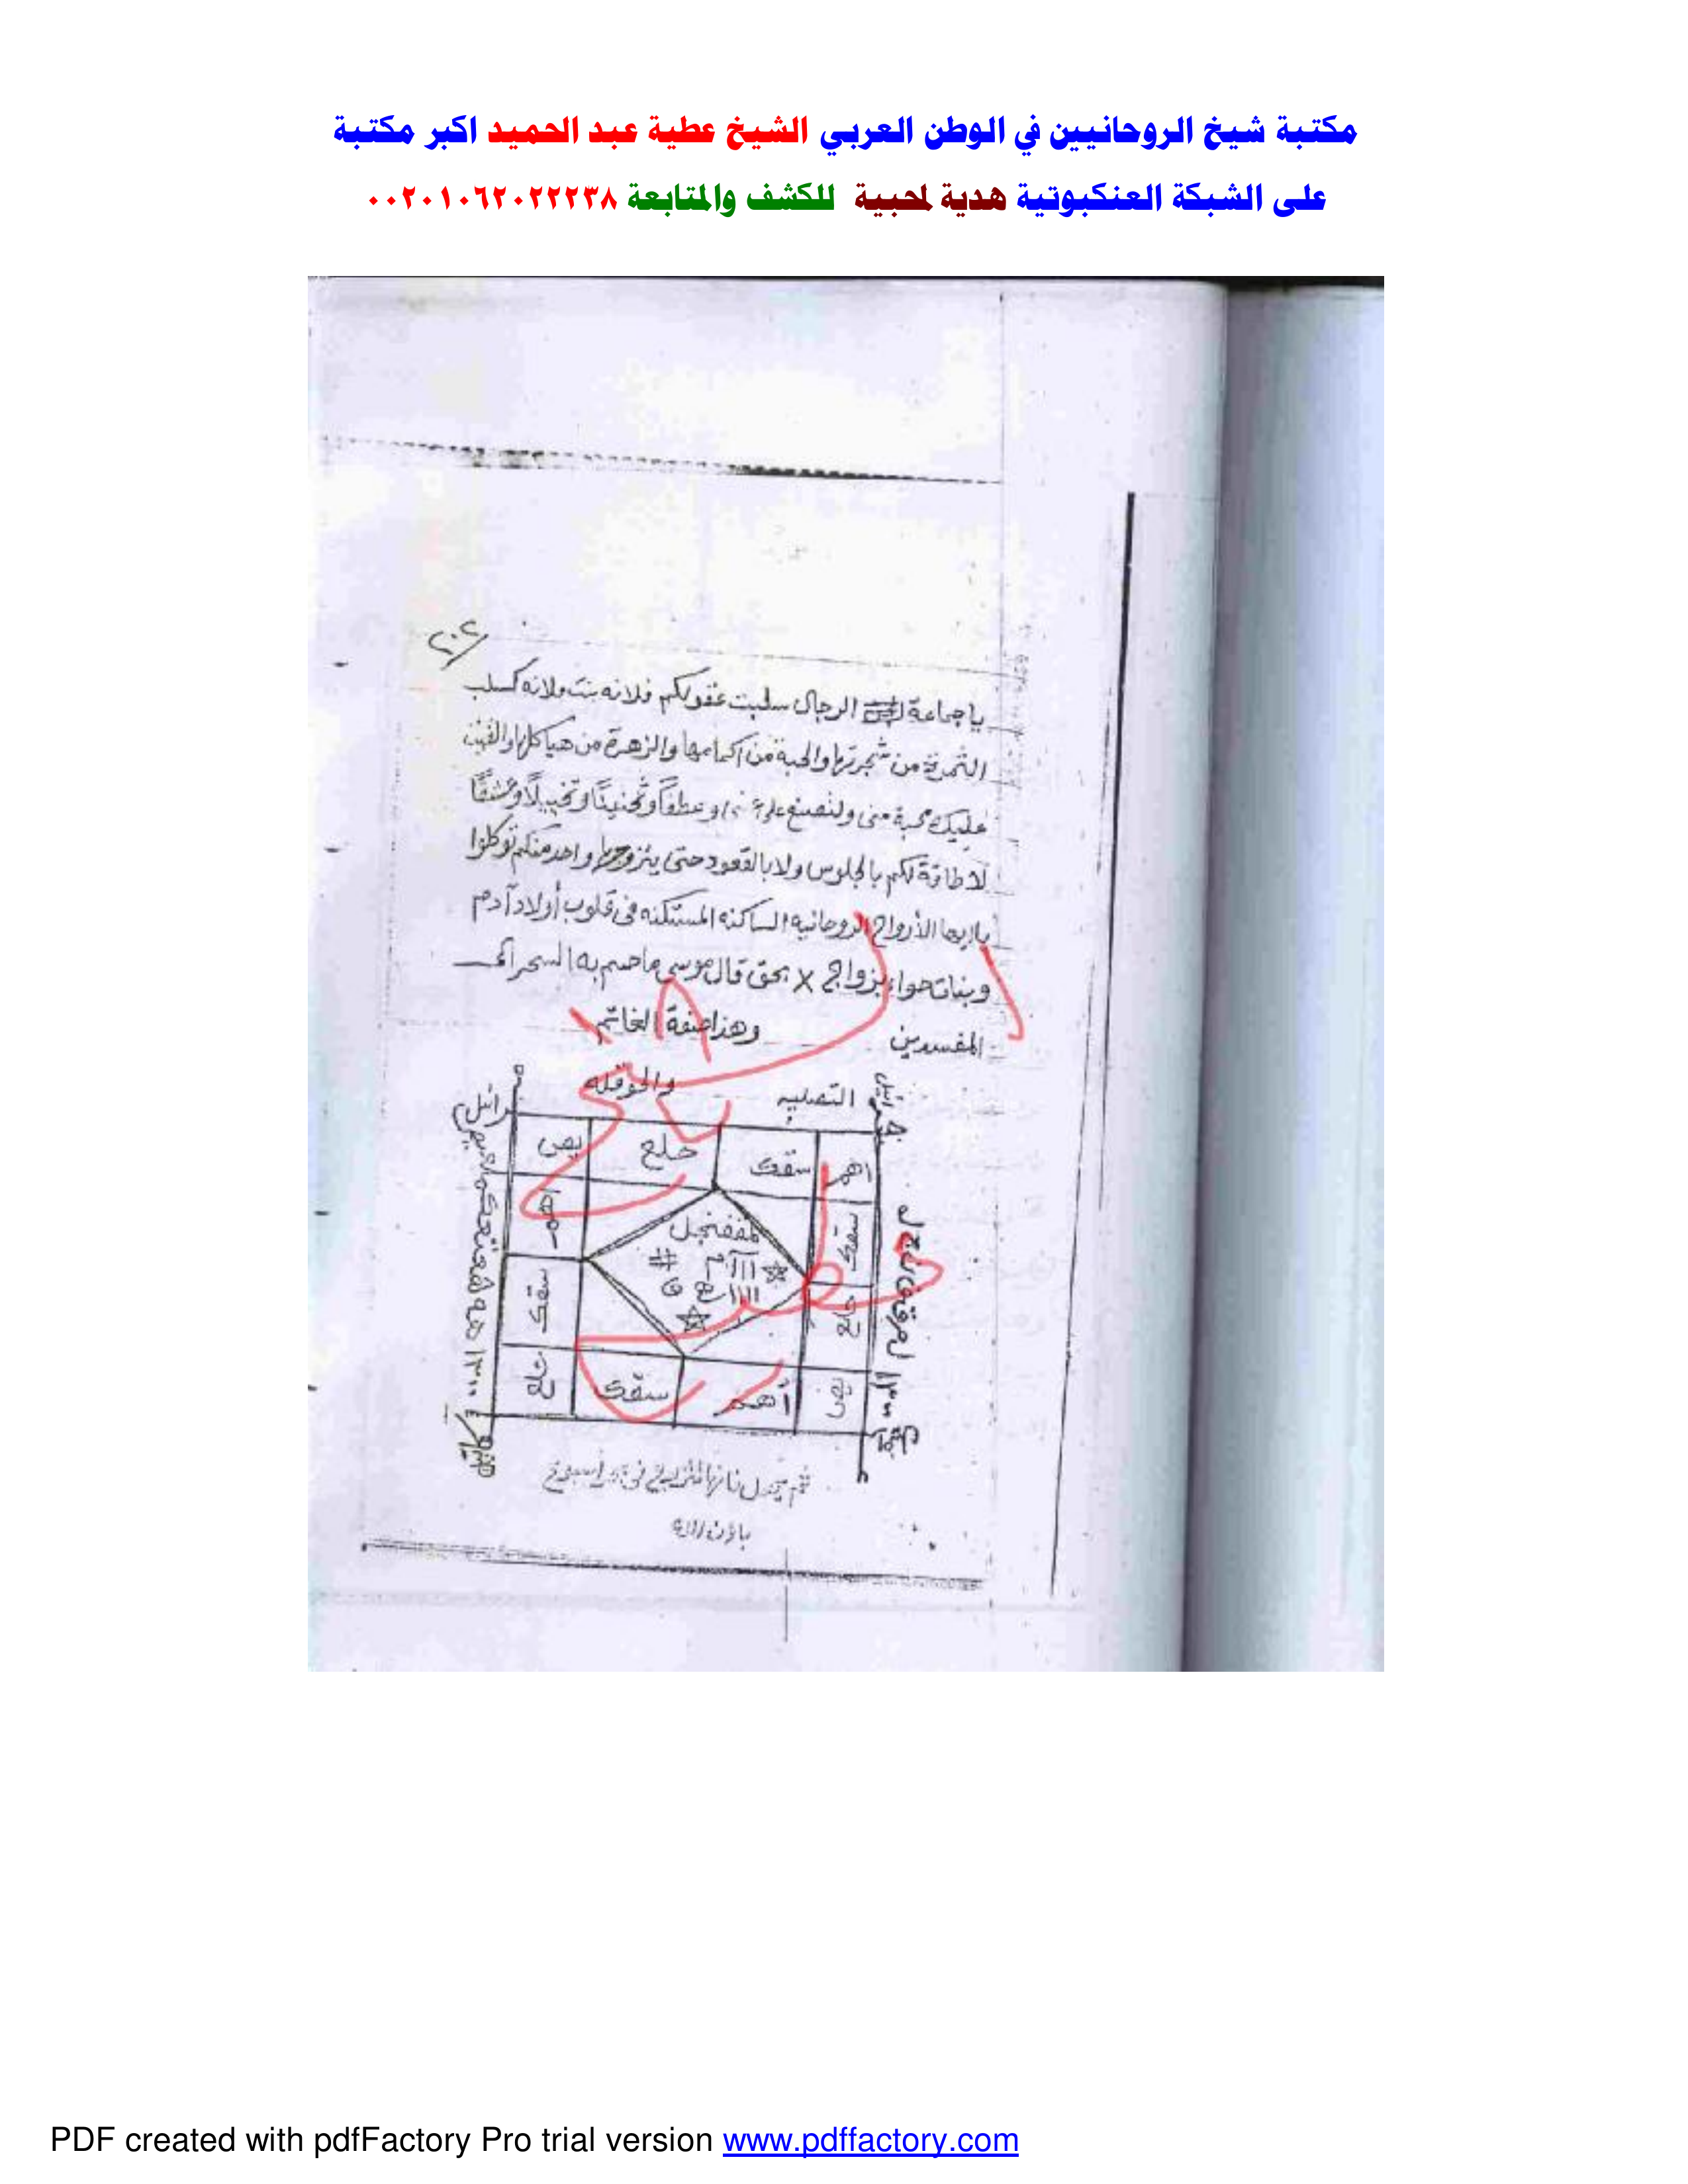 مكتبة شيخ الروحانيين في الوطن العربي الشيخ عطية عبد الحميد اكبر مكتبة
على الشبكة العنكبوتية هدية لمحبية للكشف والمتابعة ٠٠٢٠١٠٦٢٠٢٢٢٣٨
٢٠٢
يا جماعة الرجال سلبت عقولكم فلانه بنت فلانه كسلب
الثمرة من شجرتها والحبة من أكمامها والزهرة من هياكلها وألقيت
عليك محبة منى ولتصنع على وعطفاً وتحنيناً وعشقاً
لا طاقة لكم بالجلوس ولا بالقعود حتى يتزوجها واحد منكم توكلوا
يا ايها الأرواح الروحانيه الساكنه المستكنه فى قلوب أولاد آدم
وبنات حواء بزواج x بحق قال موسى ما جئتم به السحر الى
المفسدين وهذا صفة الخاتم
التصليه والحوقله
اهم سقك حلع يص
سقك اهم
حلع سقك
يص أهم سقك حلع
باذن الله
PDF created with pdfFactory Pro trial version www.pdffactory.com